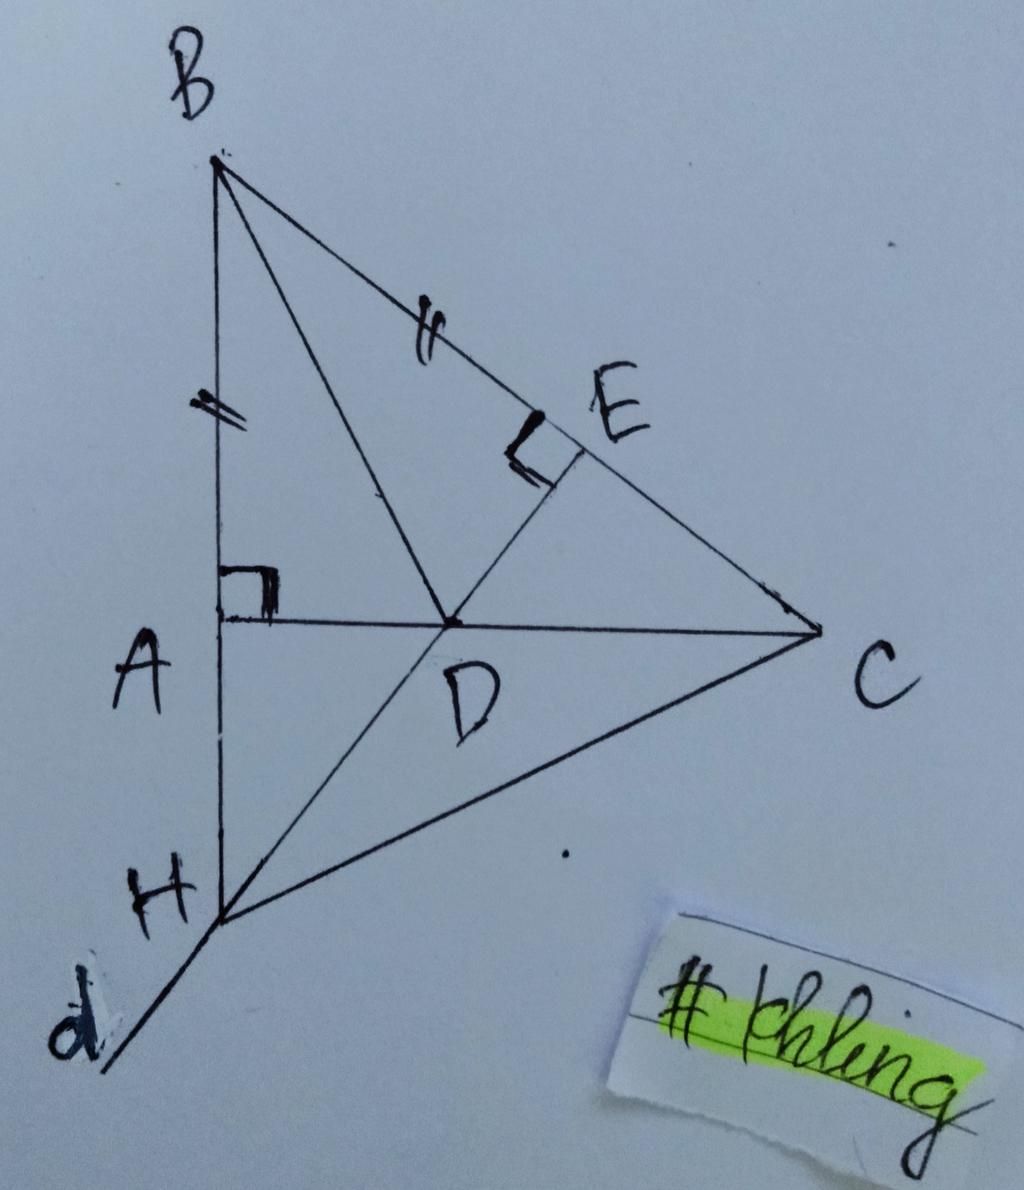 B
E
A
D
C
H
d
# khling